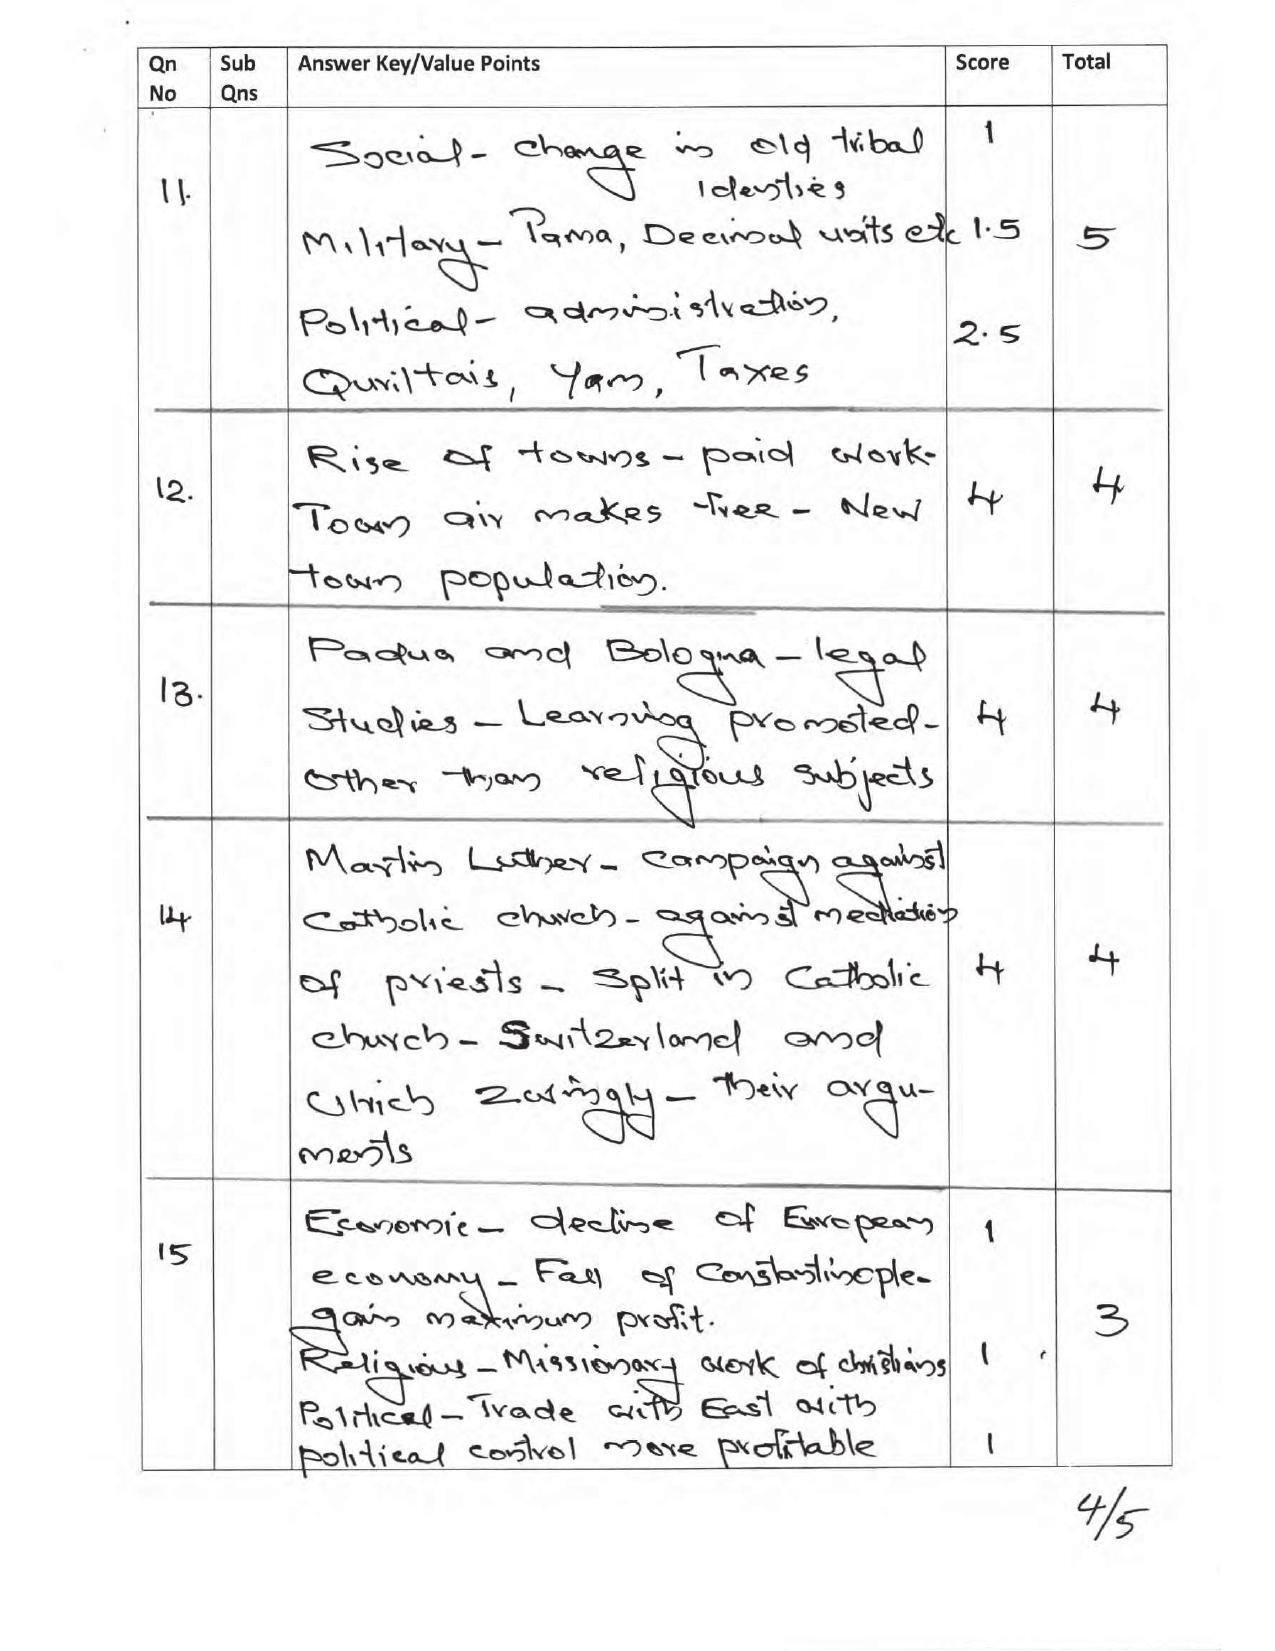 Qn No Sub Qns Answer Key/Value Points Score Total
Social - change in old tribal 1
11. Identies
Military - Tama, Decimal units etc 1.5 5
Political - administration,
2.5
Quriltais, Yam, Taxes
Rise of towns - paid work-
12. 4 4
Town air makes free - New
town population.
Padua and Bologna - legal
13.
Studies - Learning promoted- 4 4
other than religious subjects
Martin Luther - campaign against
14 Catholic church - against mediation
of priests - Split in Catholic 4 4
church - Switzerland and
Ulrich Zwingly - their argu-
ments
Economic - decline of European 1
15
economy - Fall of Constantinople-
gain maximum profit. 3
Religious - Missionary work of christians 1
Political - Trade with East with
political control more profitable 1
4/5